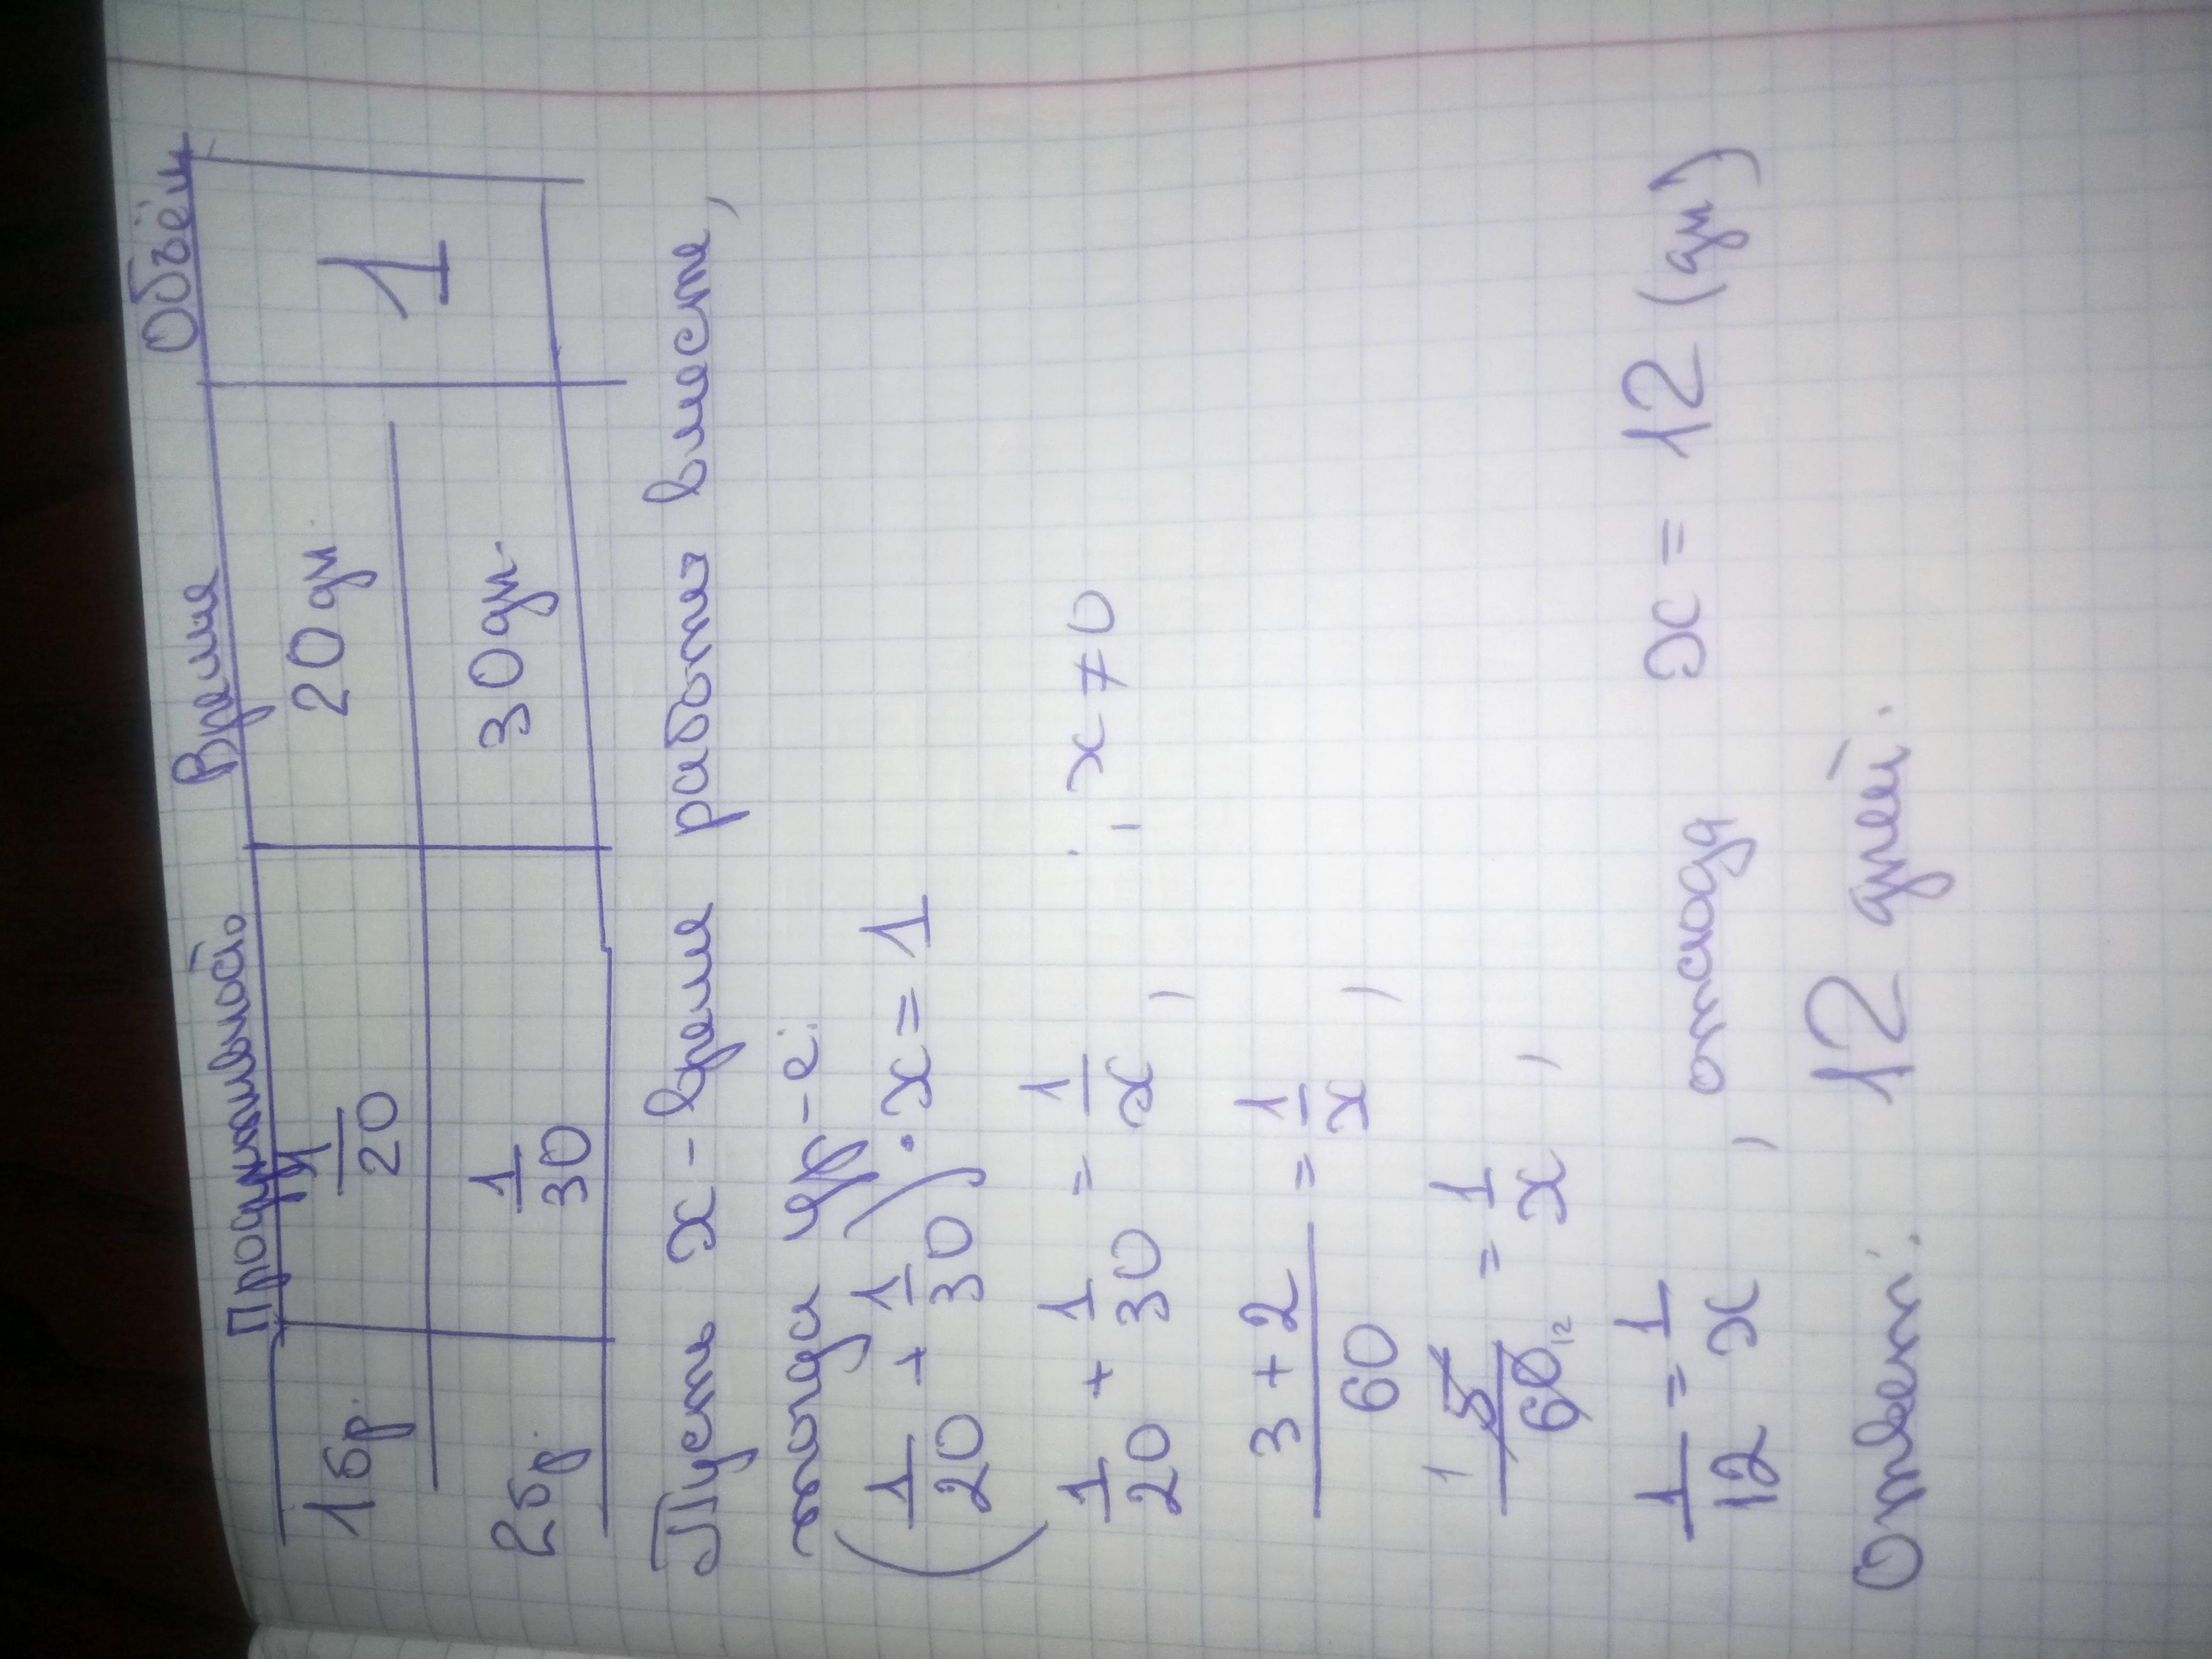 Продуктивность Время Объём
1 бр. 1/20 20 дн 1
2 бр. 1/30 30 дн.
Пусть x - время работы вместе,
тогда ур-е:
(1/20 + 1/30) · x = 1
1/20 + 1/30 = 1/x, x ≠ 0
3+2/60 = 1/x,
1 5/60 12 = 1/x,
1/12 = 1/x, отсюда x = 12 (дн)
Ответ: 12 дней.